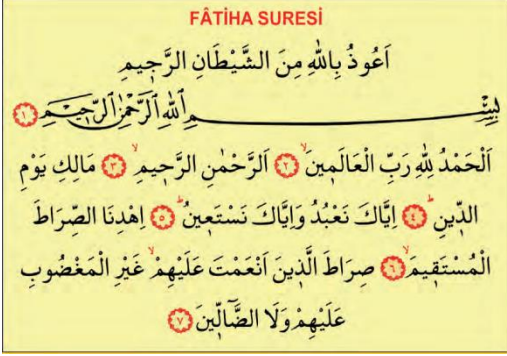 FÂTİHA SURESİ
اَعُوذُ بِاللّٰهِ مِنَ الشَّيْطَانِ الرَّجٖيمِ
بِسْمِ اللّٰهِ الرَّحْمٰنِ الرَّحٖيمِ ﴿١﴾
اَلْحَمْدُ لِلّٰهِ رَبِّ الْعَالَمٖينَۙ ﴿٢﴾ اَلرَّحْمٰنِ الرَّحٖيمِۙ ﴿٣﴾ مَالِكِ يَوْمِ
الدّٖينِۜ ﴿٤﴾ اِيَّاكَ نَعْبُدُ وَاِيَّاكَ نَسْتَعٖينُۜ ﴿٥﴾ اِهْدِنَا الصِّرَاطَ
الْمُسْتَقٖيمَۙ ﴿٦﴾ صِرَاطَ الَّذٖينَ اَنْعَمْتَ عَلَيْهِمْۙ غَيْرِ الْمَغْضُوبِ
عَلَيْهِمْ وَلَا الضَّٓالّٖينَ ﴿٧﴾